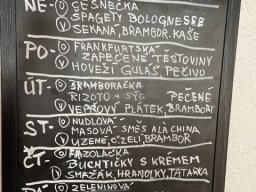 NE- O ČESNEČKA
O ŠPAGETY BOLOGNESE
V SEKANÁ, BRAMBOR. KAŠE
PO- O FRANKFURTSKÁ
O ZAPEČENÉ TĚSTOVINY
V HOVĚZÍ GULÁŠ PEČIVO
ÚT- O BRAMBORAČKA
O RIZOTO - SÝR PEČENÉ
V VEPŘOVÝ PLÁTEK, BRAMBORY
ST- O NUDLOVÁ
O MASOVÁ SMĚS ALA CHINA
V UZENÉ, Č. ZELÍ, BRAMBOR
ČT- O FAZOLAČKA
O BUCHTIČKY S KRÉMEM
V SMAŽÁK, HRANOLKY, TATARKA
PÁ- O ZELENINOVÁ